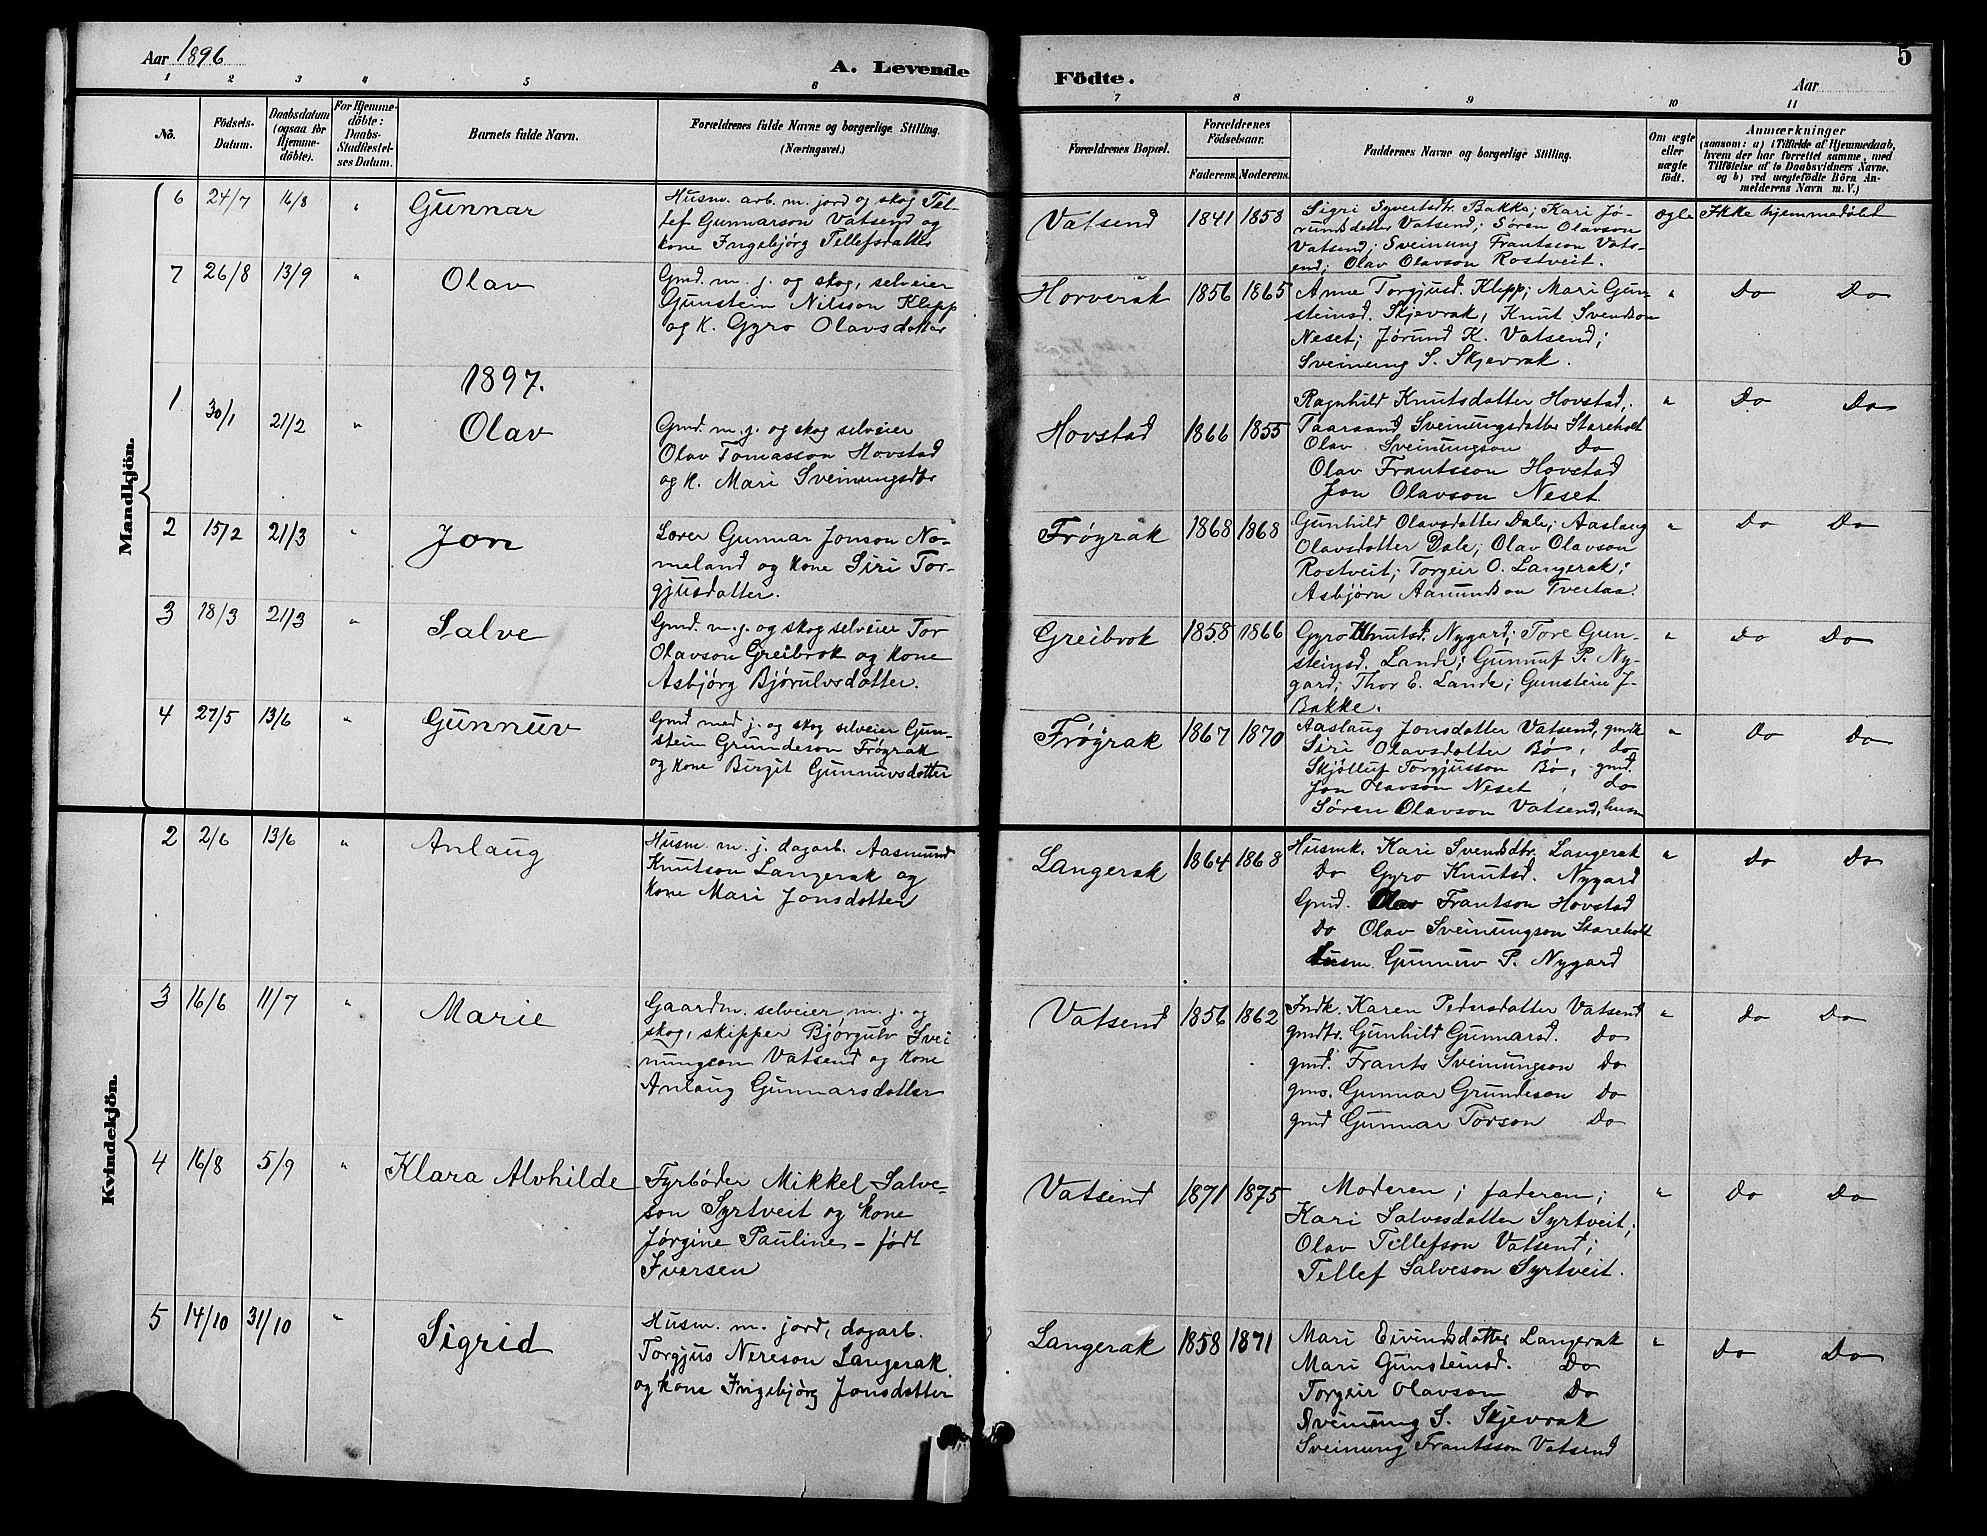 Aar 1896
A. Levende
Födte.
Aar
5
1 2 3 4 5 6 7 8 9 10 11
No.
Födsels-
Datum.
Daabsdatum
(ogsaa for
Hjemme-
döbte).
For Hjemme-
döbte:
Daabs-
Stadfæstel-
ses Datum.
Barnets fulde Navn.
Forældrenes fulde Navne og borgerlige Stilling.
(Næringsvei.)
Forældrenes Bopæl.
Forældrenes
Födselsaar.
Faderens. Moderens.
Faddernes Navne og borgerlige Stilling.
Om ægte
eller
uægte
født.
Anmærkninger
(saasom: a) i Tilfælde af Hjemmedaab,
hvem der har forrettet samme, med
Tilföielse af to Daabsvidners Navne,
og b) ved uægtefödte Börn An-
melderens Navn m. V.)
Mandkjön.
6 24/7 16/8 " Gunnar
Husm. arb. m. jord og skog Tel-
lef Gunnarson Vatsend og
kone Ingebjörg Tellefsdatter
Vatsend 1841 1858
Sigri Syvertsdtr. Bakke; Kari Jø-
rundsdatter Vatsend; Søren Olavson
Vatsend; Sveinung Frantsson Vats-
end; Olav Olavson Rostveit.
egte Ikke hjemmedøbt
7 26/8 13/9 " Olav
Gmd. m. j. og skog, selveier
Gunstein Nilsson Klepp
og K. Gyro Olavsdatter
Horverak 1856 1865
Anne Torgjusd. Klepp; Mari Gun-
steinsd. Skjevrak, Knut Svendson
Neset; Jørund K. Vatsend;
Sveinung S. Skjevrak.
" Do Do
1897.
1 30/1 21/2 " Olav
Gmd. m. j. og skog selveier
Olav Tomasson Hovstad
og K. Mari Sveinungsdtr
Hovstad 1866 1855
Ragnhild Knutsdatter Hovstad,
Taaraand Sveinungsdatter Stareholt
Olav Sveinungson Do
Olav Frantsson Hovstad
Jon Olavson Neset
" Do Do
2 15/2 21/3 " Jon
Lærer Gunnar Jonson No-
meland og kone Siri Tor-
gjusdatter.
Frøyrak 1868 1868
Gunhild Olavsdatter Dale; Aaslaug
Olavsdatter Dale; Olav Olavson
Rostveit; Torgeir O. Langerak;
Asbjörn Aamundson Tveitaa.
" Do Do
3 18/3 21/3 " Salve
Gmd. m. j. og skog selveier Tor
Olavson Greibrok og kone
Asbjörg Bjørulvsdatter.
Greibrok 1858 1866
Gyro Knutsd. Nygard; Tore Gun-
steinsd. Lande; Gunnuf P. Ny-
gard; Thor E. Lande; Gunstein J.
Bakke.
" Do Do
4 27/5 13/6 " Gunnuv
Gmd med j. og skog selveier Gun-
stein Grundeson Frøyrak
og kone Birgit Gunnuvsdatter
Frøyrak 1867 1870
Aaslaug Jonsdatter Vatsend, gmdk
Siri Olavsdatter Bø, do
Skjølluf Torgjusson Bø, gmd.
Jon Olavson Neset, do
Søren Olavson Vatsend, husm
" Do Do
Kvindekjön.
2 2/6 13/6 " Anlaug
Husm m. j. dagarb. Aasmund
Knutson Langerak og
kone Mari Jonsdatter
Langerak 1864 1868
Husmk. Kari Svendsdtr. Langerak
Do Gyro Knutsd. Nygard
Gmd. Olav Frantson Hovstad
Do Olav Sveinungson Stareholt
Husm. Gunnuv P. Nygard
" Do Do
3 16/6 11/7 " Marie
Gaardm. selveier, m. j. og
skog, skipper Bjørgulv Svei
nungson Vatsend og kone
Anlaug Gunnarsdatter
Vatsend 1856 1862
Indk. Karen Pedersdatter Vatsend
gmdtr. Gunhild Gunnarsd. Do
gmd. Frants Sveinungson Do
gms. Gunnar Grundeson Do
gmd Gunnar Torson Do
" Do Do
4 16/8 5/9 " Klara Alvhilde
Fyrbøder Mikkel Salve-
son Syrtveit og kone
Jørgine Pauline – født
Iversen
Vatsend 1871 1875
Moderen; faderen;
Kari Salvesdatter Syrtveit;
Olav Tillefson Vatsend;
Tellef Salveson Syrtveit.
" Do Do
5 14/10 31/10 " Sigrid
Husm. m. jord, dagarb.
Torgjus Nereson Langerak
og kone Ingebjørg Jonsdatter
Langerak 1858 1871
Mari Eivindsdatter Langerak
Mari Gunsteinsd. Do
Torgeir Olavson Do
Sveinung S. Skjevrak
Sveinung Frantsson Vatsend
" Do Do